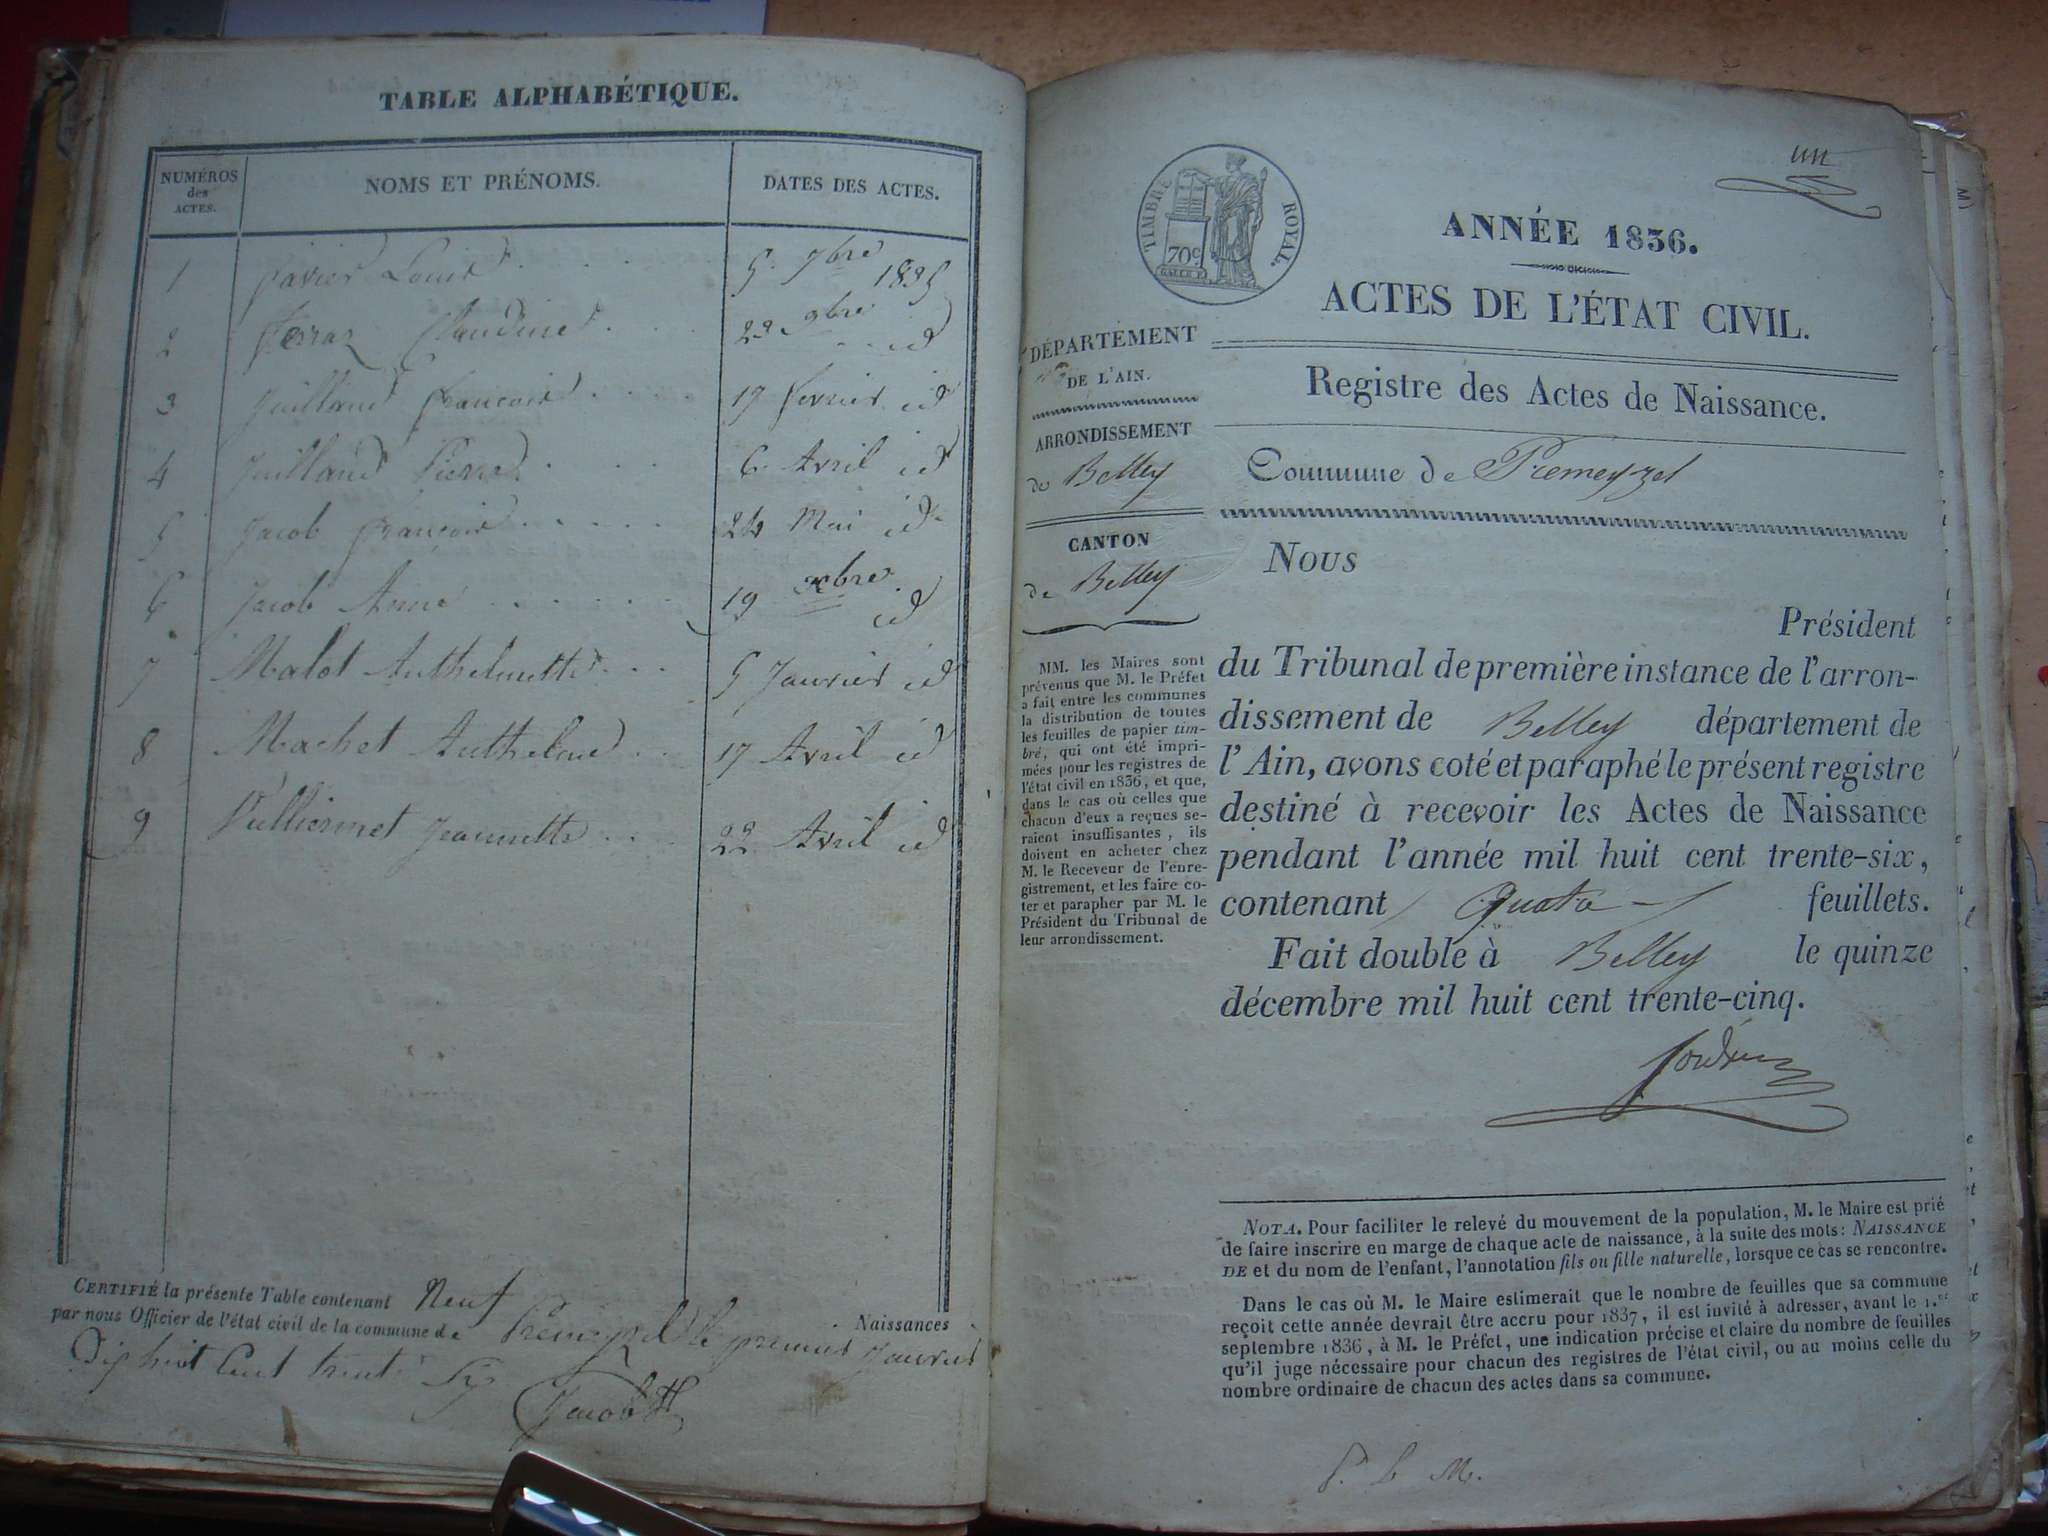 TABLE ALPHABÉTIQUE.
NUMÉROS des ACTES.
NOMS ET PRÉNOMS.
DATES DES ACTES.
1 Louis 5 7bre 1835
2 Claudine 22 9bre id
3 Juilland François 17 fevrier id
4 Juilland Pierre 6 Avril id
5 Jacob François 24 Mai id
6 Jacob Anne 19 xbre id
7 Malot Anthelmette 5 Janvier id
8 Machet Anthelme 17 Avril id
9 Vulliermet Jeannette 22 Avril id
CERTIFIÉ la présente Table contenant Neuf Naissances
par nous Officier de l'état civil de la commune de Premeyzel le premier Janvier
Dix huit Cent trente Six
Jacob
un
TIMBRE ROYAL.
70c
ANNÉE 1836.
ACTES DE L'ÉTAT CIVIL.
Registre des Actes de Naissance.
Commune de Premeyzel
DÉPARTEMENT
DE L'AIN.
ARRONDISSEMENT
de Belley
CANTON
de Belley
MM. les Maires sont
prévenus que M. le Préfet
a fait entre les communes
la distribution de toutes
les feuilles de papier tim-
bré, qui ont été impri-
mées pour les registres de
l'état civil en 1836, et que,
dans le cas où celles que
chacun d'eux a reçues se-
raient insuffisantes, ils
doivent en acheter chez
M. le Receveur de l'enre-
gistrement, et les faire co-
ter et parapher par M. le
Président du Tribunal de
leur arrondissement.
Nous
Président
du Tribunal de première instance de l'arron-
dissement de Belley département de
l'Ain, avons coté et paraphé le présent registre
destiné à recevoir les Actes de Naissance
pendant l'année mil huit cent trente-six,
contenant quatre feuillets.
Fait double à Belley le quinze
décembre mil huit cent trente-cinq.
NOTA. Pour faciliter le relevé du mouvement de la population, M. le Maire est prié
de faire inscrire en marge de chaque acte de naissance, à la suite des mots: NAISSANCE
DE et du nom de l'enfant, l'annotation fils ou fille naturelle, lorsque ce cas se rencontre.
Dans le cas où M. le Maire estimerait que le nombre de feuilles que sa commune
reçoit cette année devrait être accru pour 1837, il est invité à adresser, avant le 1.er
septembre 1836, à M. le Préfet, une indication précise et claire du nombre de feuilles
qu'il juge nécessaire pour chacun des registres de l'état civil, ou au moins celle du
nombre ordinaire de chacun des actes dans sa commune.
P. L. M.